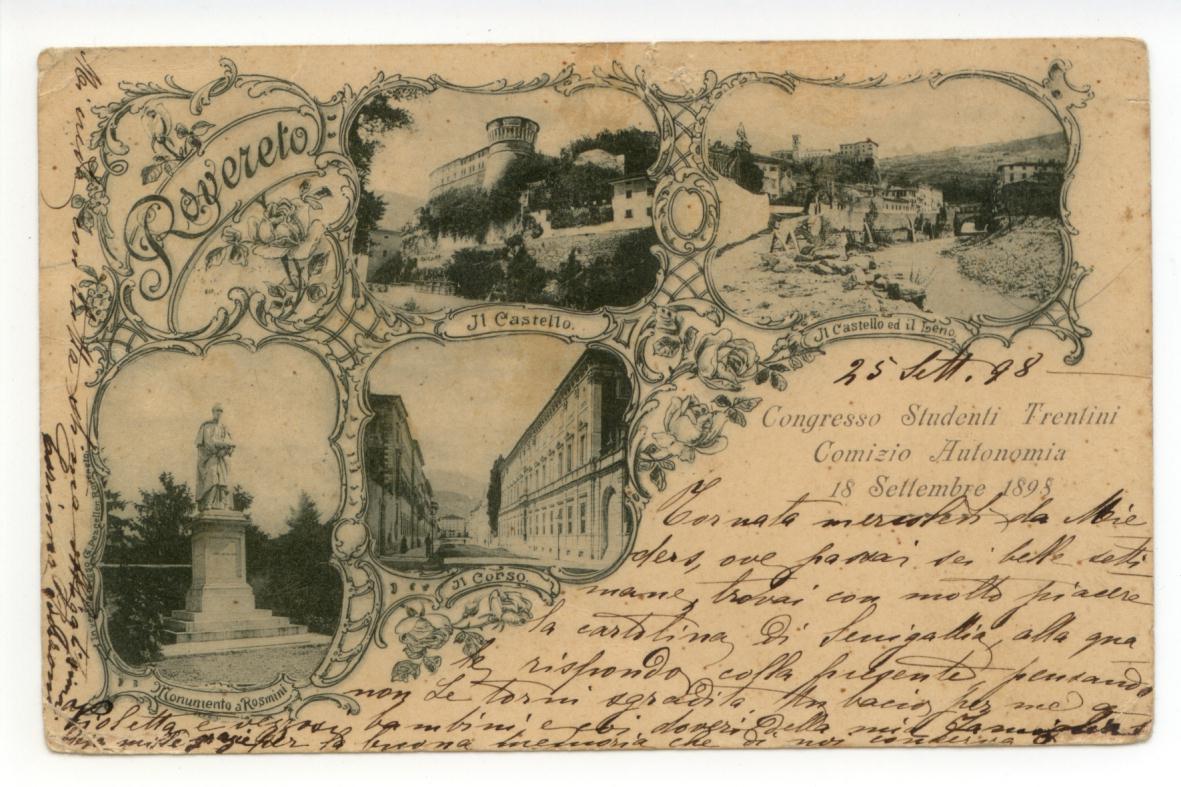 Rovereto
Il Castello.
Il Castello ed il Leno.
Monumento a Rosmini
Il Corso.
25 Sett. 98
Congresso Studenti Trentini
Comizio Autonomia
18 Settembre 1898
Tornata mercoledì da Mie
ders, ove passai sei belle setti
mane, trovai con molto piacere
la cartolina di Senigallia, alla qua
le rispondo colla presente pensando
non Le torni sgradita. Un bacio per me a
Violetta e vezzosi bambini e coi doveri della mia famiglia
mille grazie per la buona memoria che di noi conserva